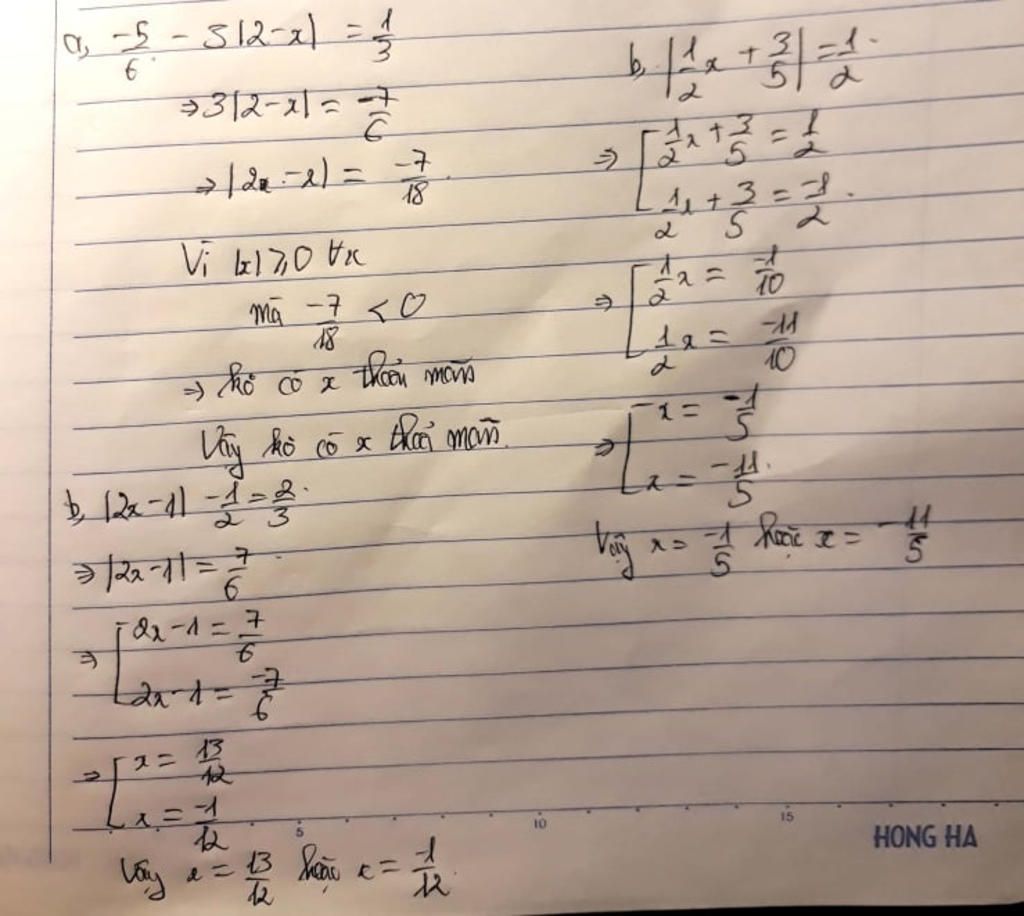 a, -5/6 - 3|2-x| = 1/3
⇒ 3|2-x| = -7/6
⇒ |2-x| = -7/18.
Vì |x| ≥ 0 ∀x
mà -7/18 < 0
⇒ ko có x thoả mãn
Vậy ko có x thoả mãn.
b, |2x-1| - 1/2 = 2/3.
⇒ |2x-1| = 7/6.
⇒ [ 2x-1 = 7/6
2x-1 = -7/6
⇒ [ x = 13/12
x = -1/12
Vậy x = 13/12 hoặc x = -1/12.
b, |1/2x + 3/5| = 1/2.
⇒ [ 1/2x + 3/5 = 1/2
1/2x + 3/5 = -1/2.
⇒ [ 1/2x = -1/10
1/2x = -11/10
⇒ [ x = -1/5
x = -11/5.
Vậy x = -1/5 hoặc x = -11/5
5 10 15
HONG HA